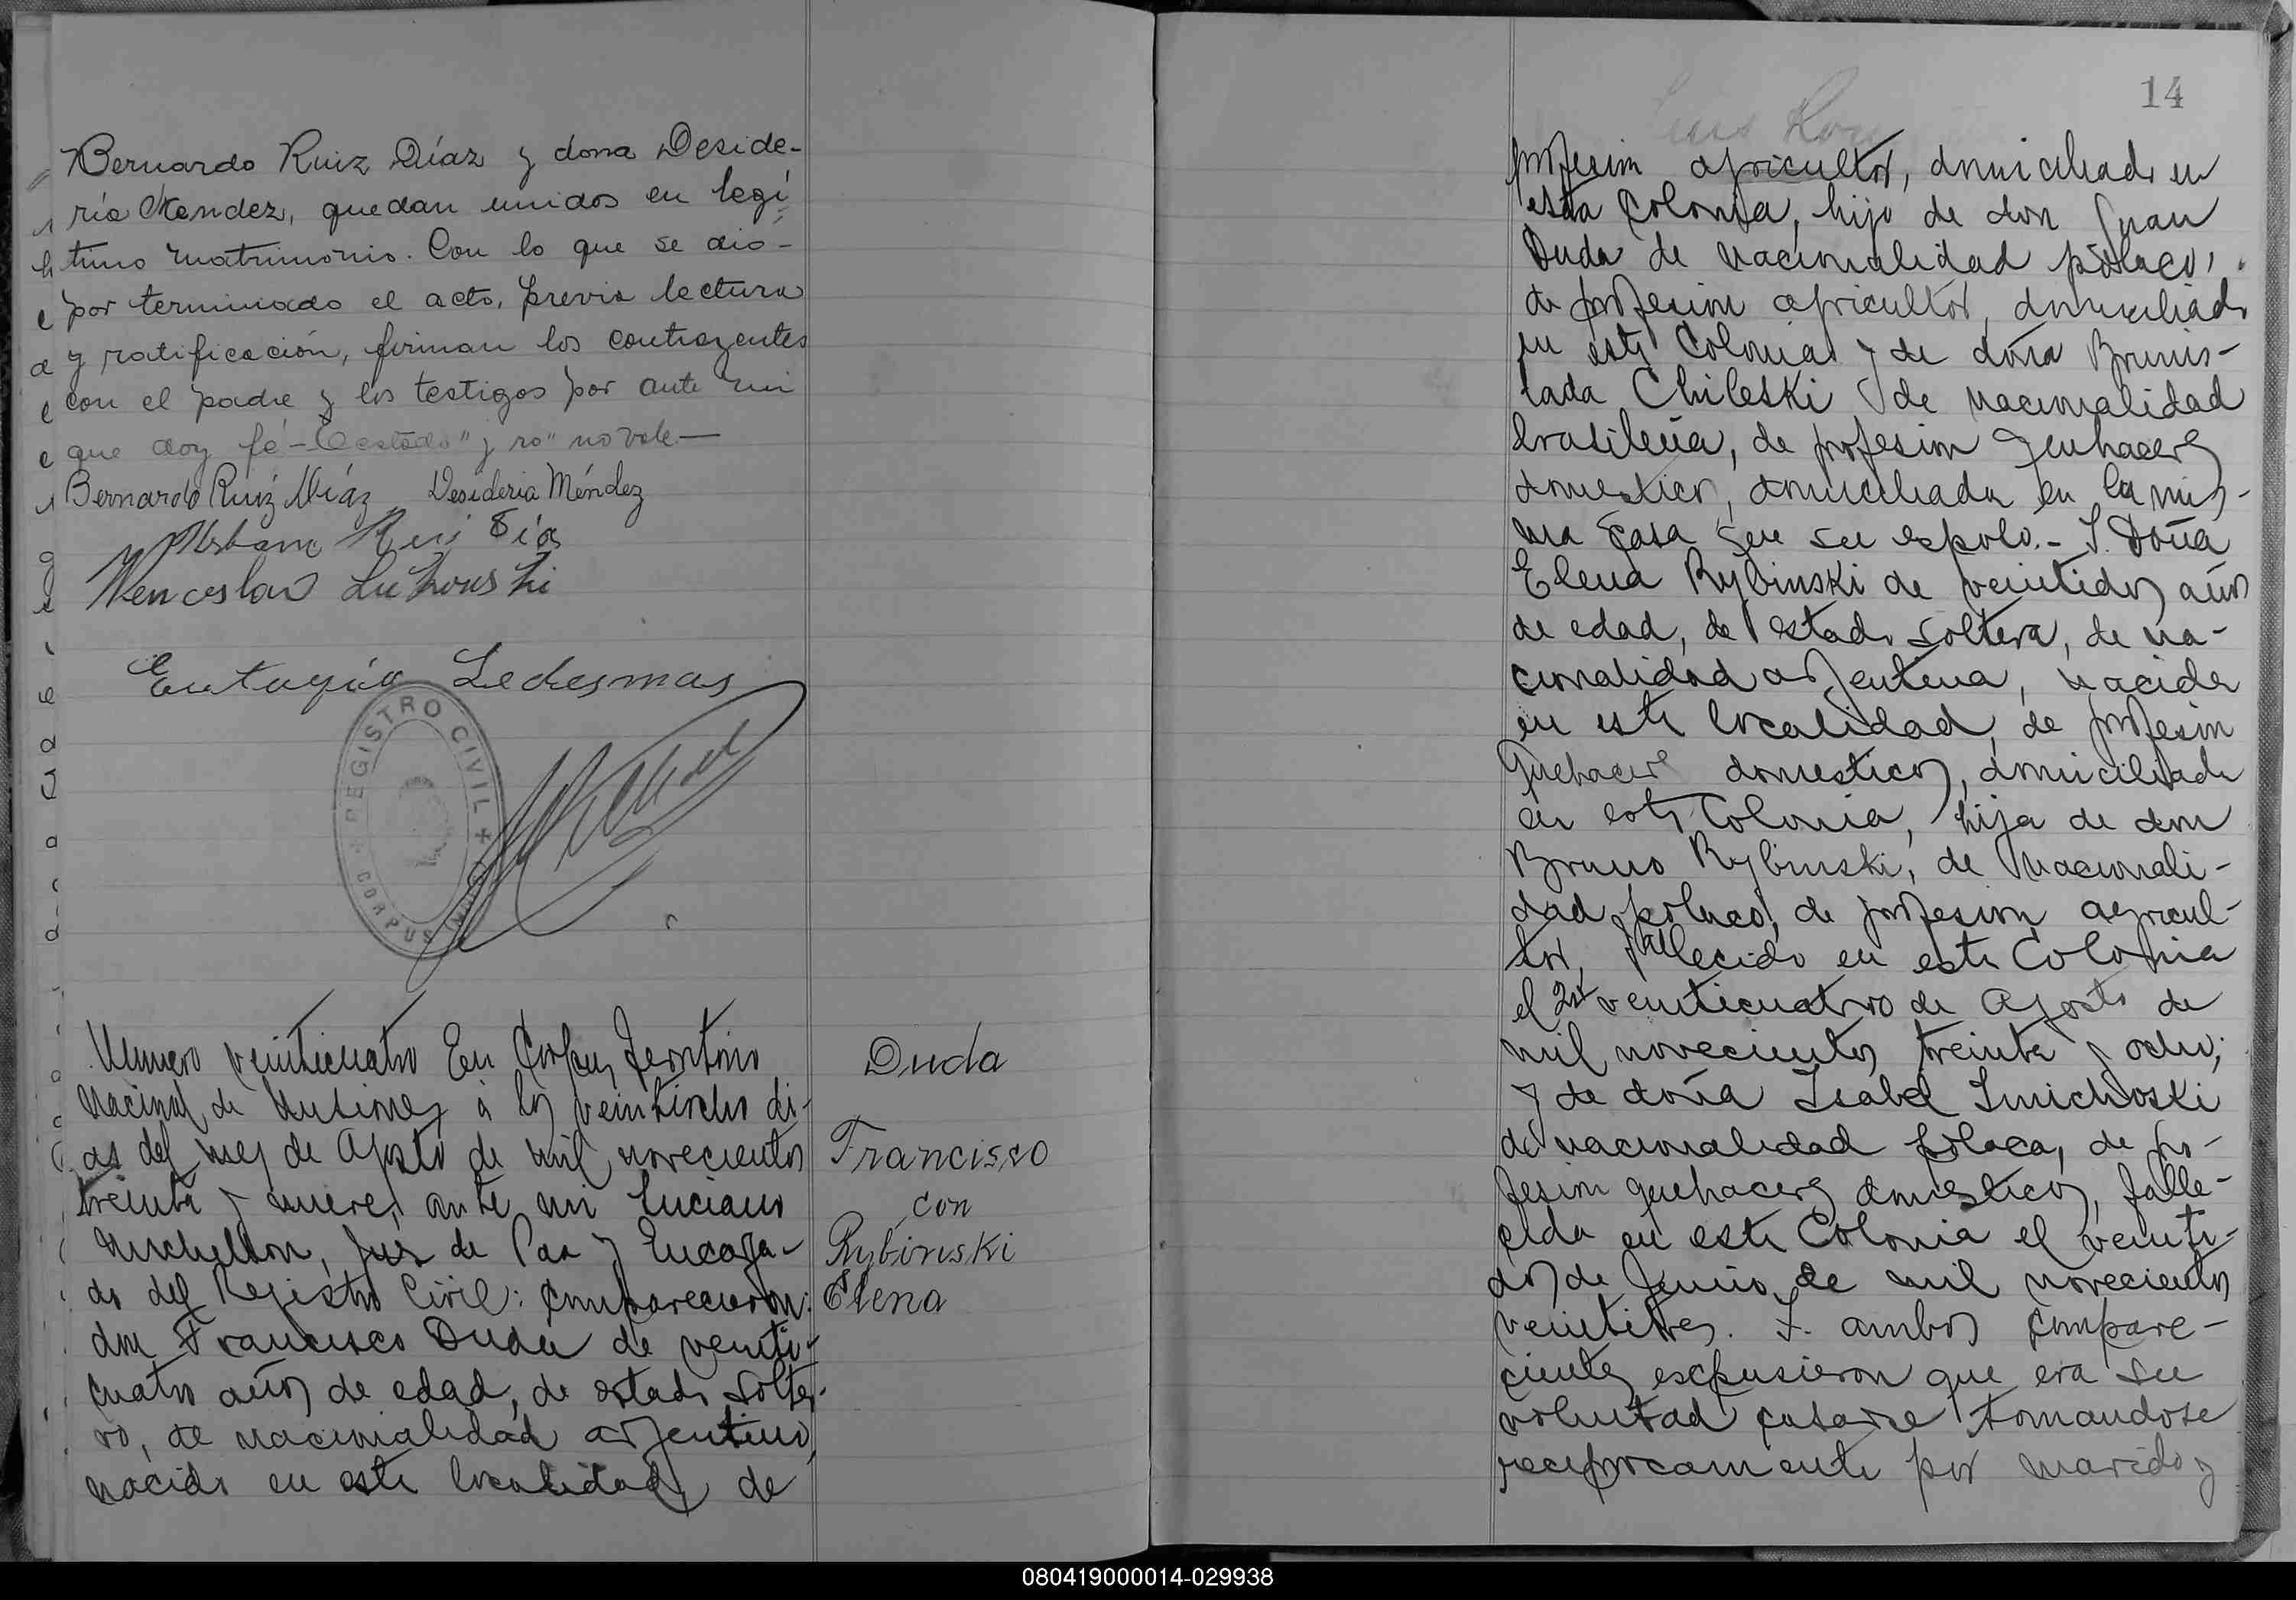 Bernardo Ruiz Díaz y dona Deside-
ria Mendez, quedan unidos en legí
timo matrimonio. Con lo que se dió-
por terminado el acto, previa lectura
y ratificación, firman los contrayentes
con el padre y los testigos por ante mi
que doy fé - "estado" y "ro" no vale—
Bernardo Ruiz Díaz Desideria Méndez
Wenceslao
Eutaquia Ledesmas
REGISTRO CIVIL
CORPUS
Numero veinticuatro En Corpus, Territorio
Nacional de Misiones a los veintiocho di-
as del mes de Agosto de mil novecientos
treinta y nueve, ante mi Luciano
Michellon, Juez de Paz y Encarga-
do del Registro Civil: comparecieron:
don Francisco Duda de veinti-
cuatro años de edad, de estado solte-
ro, de nacionalidad argentino,
nacido en esta localidad, de
Duda
Francisco
con
Rybinski
Elena
14
profesion agricultor, domiciliado en
esta Colonia, hijo de don Juan
Duda de nacionalidad polaco,
de profesion agricultor, domiciliado
en esta Colonia y de doña Brunis-
lada Chileski de nacionalidad
brasileña, de profesion quehaceres
domesticos, domiciliada en la mis-
ma casa que su esposo.- Y. Doña
Elena Rybinski de veintidos años
de edad, de estado soltera, de na-
cionalidad argentina, nacida
en esta localidad, de profesion
quehaceres domesticos, domiciliada
en esta Colonia, hija de don
Bruno Rybinski, de nacionali-
dad polaco, de profesion agricul-
tor, fallecido en esta Colonia
el 24 veinticuatro de Agosto de
mil novecientos treinta y ocho;
y de doña Isabel Smichoski
de nacionalidad polaca, de pro-
fesion quehaceres domesticos, falle-
cida en esta Colonia el veinti-
dos de Junio de mil novecientos
veintitres. Y. ambos compare-
cientes expusieron que era su
voluntad casarse tomandose
reciprocamente por marido y
080419000014-029938